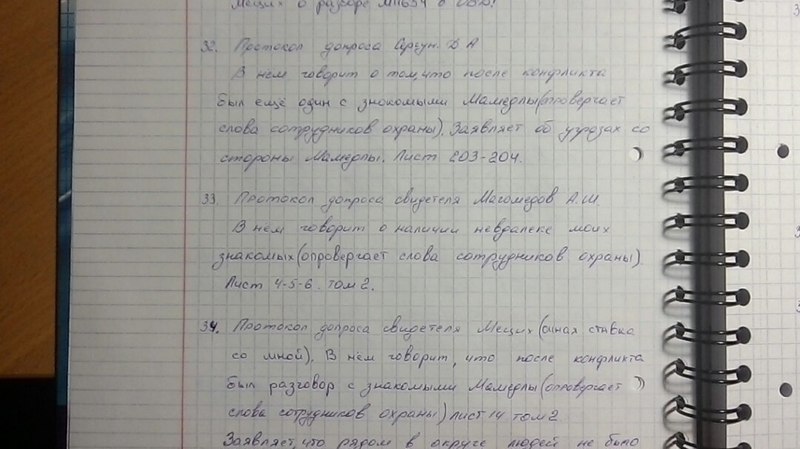 Мещих о разборе
32. Протокол допроса Сергун. Д А
В нём говорит о том, что после конфликта
был ещё один с знакомыми Мамедлы (опровергает
слова сотрудников охраны). Заявляет об угрозах со
стороны Мамедлы. Лист 203-204.
33. Протокол допроса свидетеля Магомедов А.Ш.
В нём говорит о наличии невдалеке моих
знакомых (опровергает слова сотрудников охраны)
Лист 4-5-6. том 2.
34. Протокол допроса свидетеля Мещих (очная ставка
со мной). В нём говорит, что после конфликта
был разговор с знакомыми Мамедлы (опровергает
слова сотрудников охраны) лист 14 том 2
Заявляет, что рядом в округе людей не было